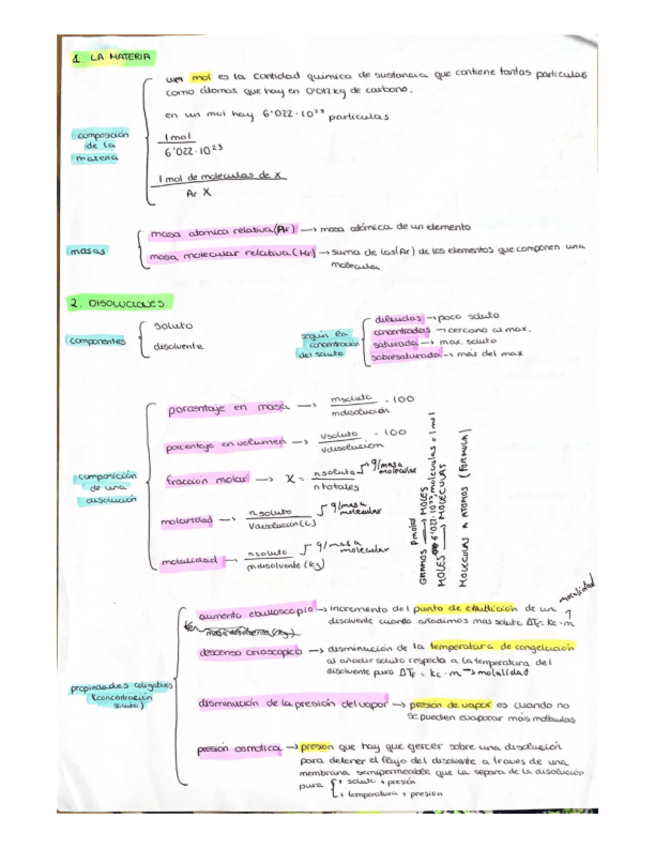 1. LA MATERIA
composición de la materia
un mol es la cantidad química de sustancia que contiene tantas partículas
como átomos que hay en 0'012 kg de carbono.
en un mol hay 6'022·10²³ partículas
1 mol
6'022·10²³
1 mol de moleculas de X
Ar X
masas
masa atomica relativa (Ar) → masa atómica de un elemento
masa molecular relativa (Mr) → suma de las (Ar) de los elementos que componen una
molecula
2. DISOLUCIONES
componentes
soluto
disolvente
según la
concentración
del soluto
diluidas → poco soluto
concentradas → cercano al max.
saturada → max. soluto
sobresaturada → más del max
composición
de una
disolución
porcentaje en masa → msoluto / mdisolución · 100
porcentaje en volumen → Vsoluto / Vdisolucion · 100
fraccion molar → X = nsoluto / ntotales
g/masa molecular
molaridad → nsoluto / Vdisolucion (L)
g/masa molecular
molalidad → nsoluto / mdisolvente (kg)
g/masa molecular
Pmolar
GRAMOS → MOLES
6'022·10²³ moleculas = 1 mol
MOLES → MOLECULAS
MOLECULAS A ATOMOS (FORMULA)
propiedades coligativas
(concentración
soluto)
aumento ebulloscopio → incremento del punto de ebullicion de un
disolvente cuando añadimos mas soluto ΔTe = ke · m
molalidad
descenso crioscopico → disminución de la temperatura de congelación
al añadir soluto respecto a la temperatura del
disolvente puro ΔTf = kc · m → molalidad
disminución de la presión del vapor → presion de vapor es cuando no
se pueden evaporar más moleculas
presión osmotica → presion que hay que gercer sobre una disolución
para detener el flujo del disolvante a traves de una
membrana semipermeable que la separa de la disolución
pura
+ soluto + presión
+ temperatura + presion